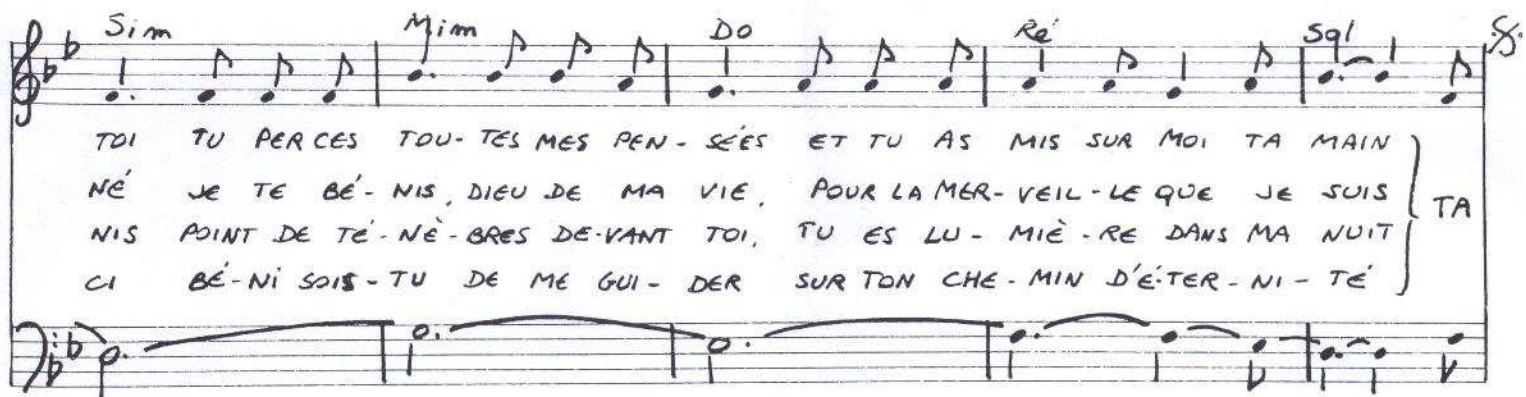 Sim Mim Do Ré Sol
TOI TU PERCES TOU-TES MES PEN-SÉES ET TU AS MIS SUR MOI TA MAIN
NÉ JE TE BÉ-NIS, DIEU DE MA VIE, POUR LA MER-VEIL-LE QUE JE SUIS
TA
NIS POINT DE TÉ-NÈ-BRES DE-VANT TOI, TU ES LU-MIÈ-RE DANS MA NUIT
CI BÉ-NI SOIS-TU DE ME GUI-DER SUR TON CHE-MIN D'É-TER-NI-TÉ